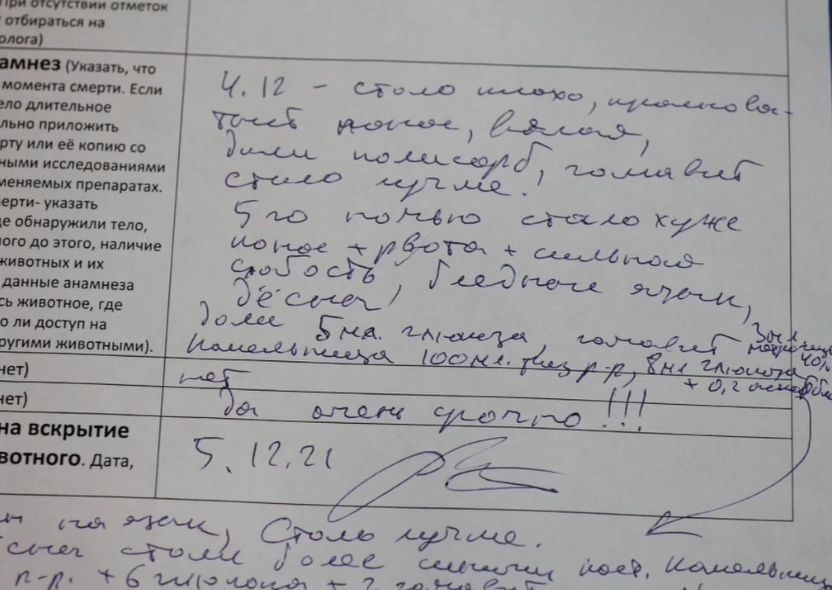 при отсутствии отметок
отбираться на
олога)
амнез (Указать, что
момента смерти. Если
ело длительное
льно приложить
рту или её копию со
ными исследованиями
меняемых препаратах.
ерти- указать
де обнаружили тело,
ного до этого, наличие
животных и их
данные анамнеза
сь животное, где
о ли доступ на
ругими животными).
4.12 - стало плохо,
понос, вялая,
дали полисорб, гамавит
стало лучше!
5го ночью стало хуже
понос + рвота + сильная
слабость, бледные язык,
дёсны,
дали 5мл. глюкоза, гамавит
капельница 100мл. физ р-р, 8мл глюкоза 40%
+ 0,2
нет)
нет
нет)
да очень срочно!!!
на вскрытие
вотного. Дата,
5.12.21
на язык, Стало лучше.
стали более
р-р. + 6 глюкоза + 2 гамавит